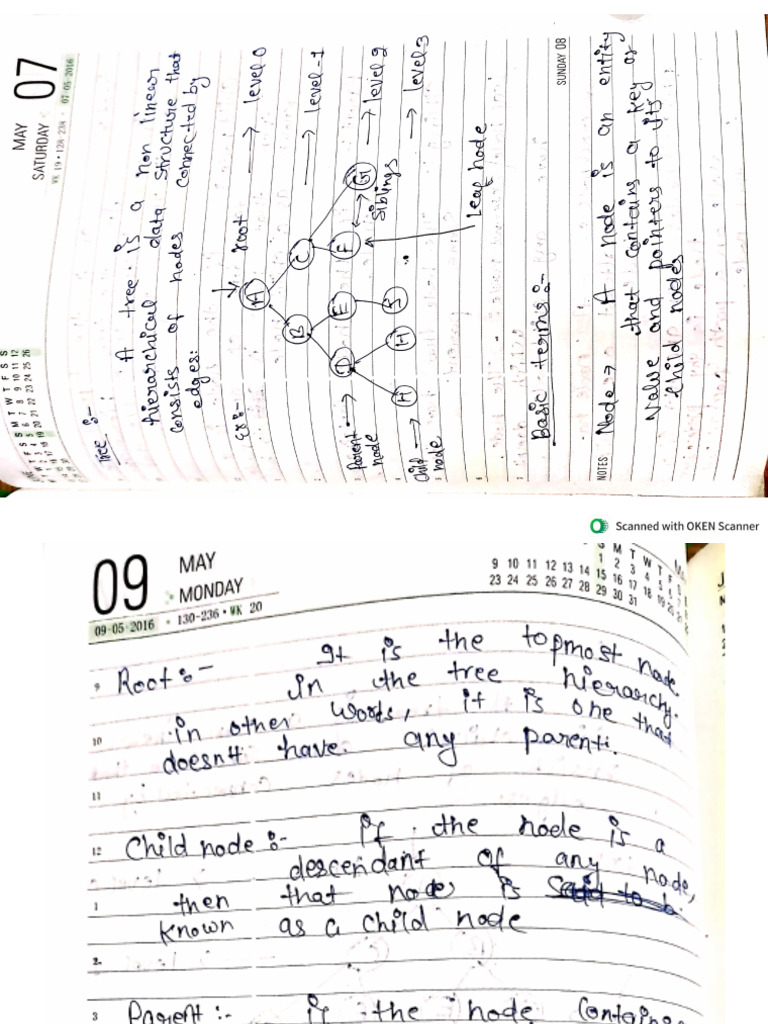 MAY
SATURDAY 07
WK 19 • 128-238 • 07-05-2016
S M T W T F S S
Tree :-
A tree is a non linear
hierarchical data structure that
consists of nodes connected by
edges:
Ex:-
root → level-0
A
→ level-1
B C
Parent → node
D E F G
→ level 2
Siblings
Child → node
H H S
→ level-3
Leaf node
SUNDAY 08
Basic terms :-
NOTES Node → A node is an entity
that contains a key or
Value and pointers to its
child nodes
Scanned with OKEN Scanner
09 MAY
MONDAY
09-05-2016 • 130-236 • WK 20
M T W T F S
1 2 3 4 5 6 7 8
9 10 11 12 13 14 15 16 17 18 19 20 21
23 24 25 26 27 28 29 30 31
9 Root :- It is the topmost node
in the tree hierarchy.
10 in other words, it is one that
doesn't have any parent.
11
12 Child node :- if the node is a
descendant of any node,
1 then that node is
known as a child node
2
3 Parent :- if the node contains